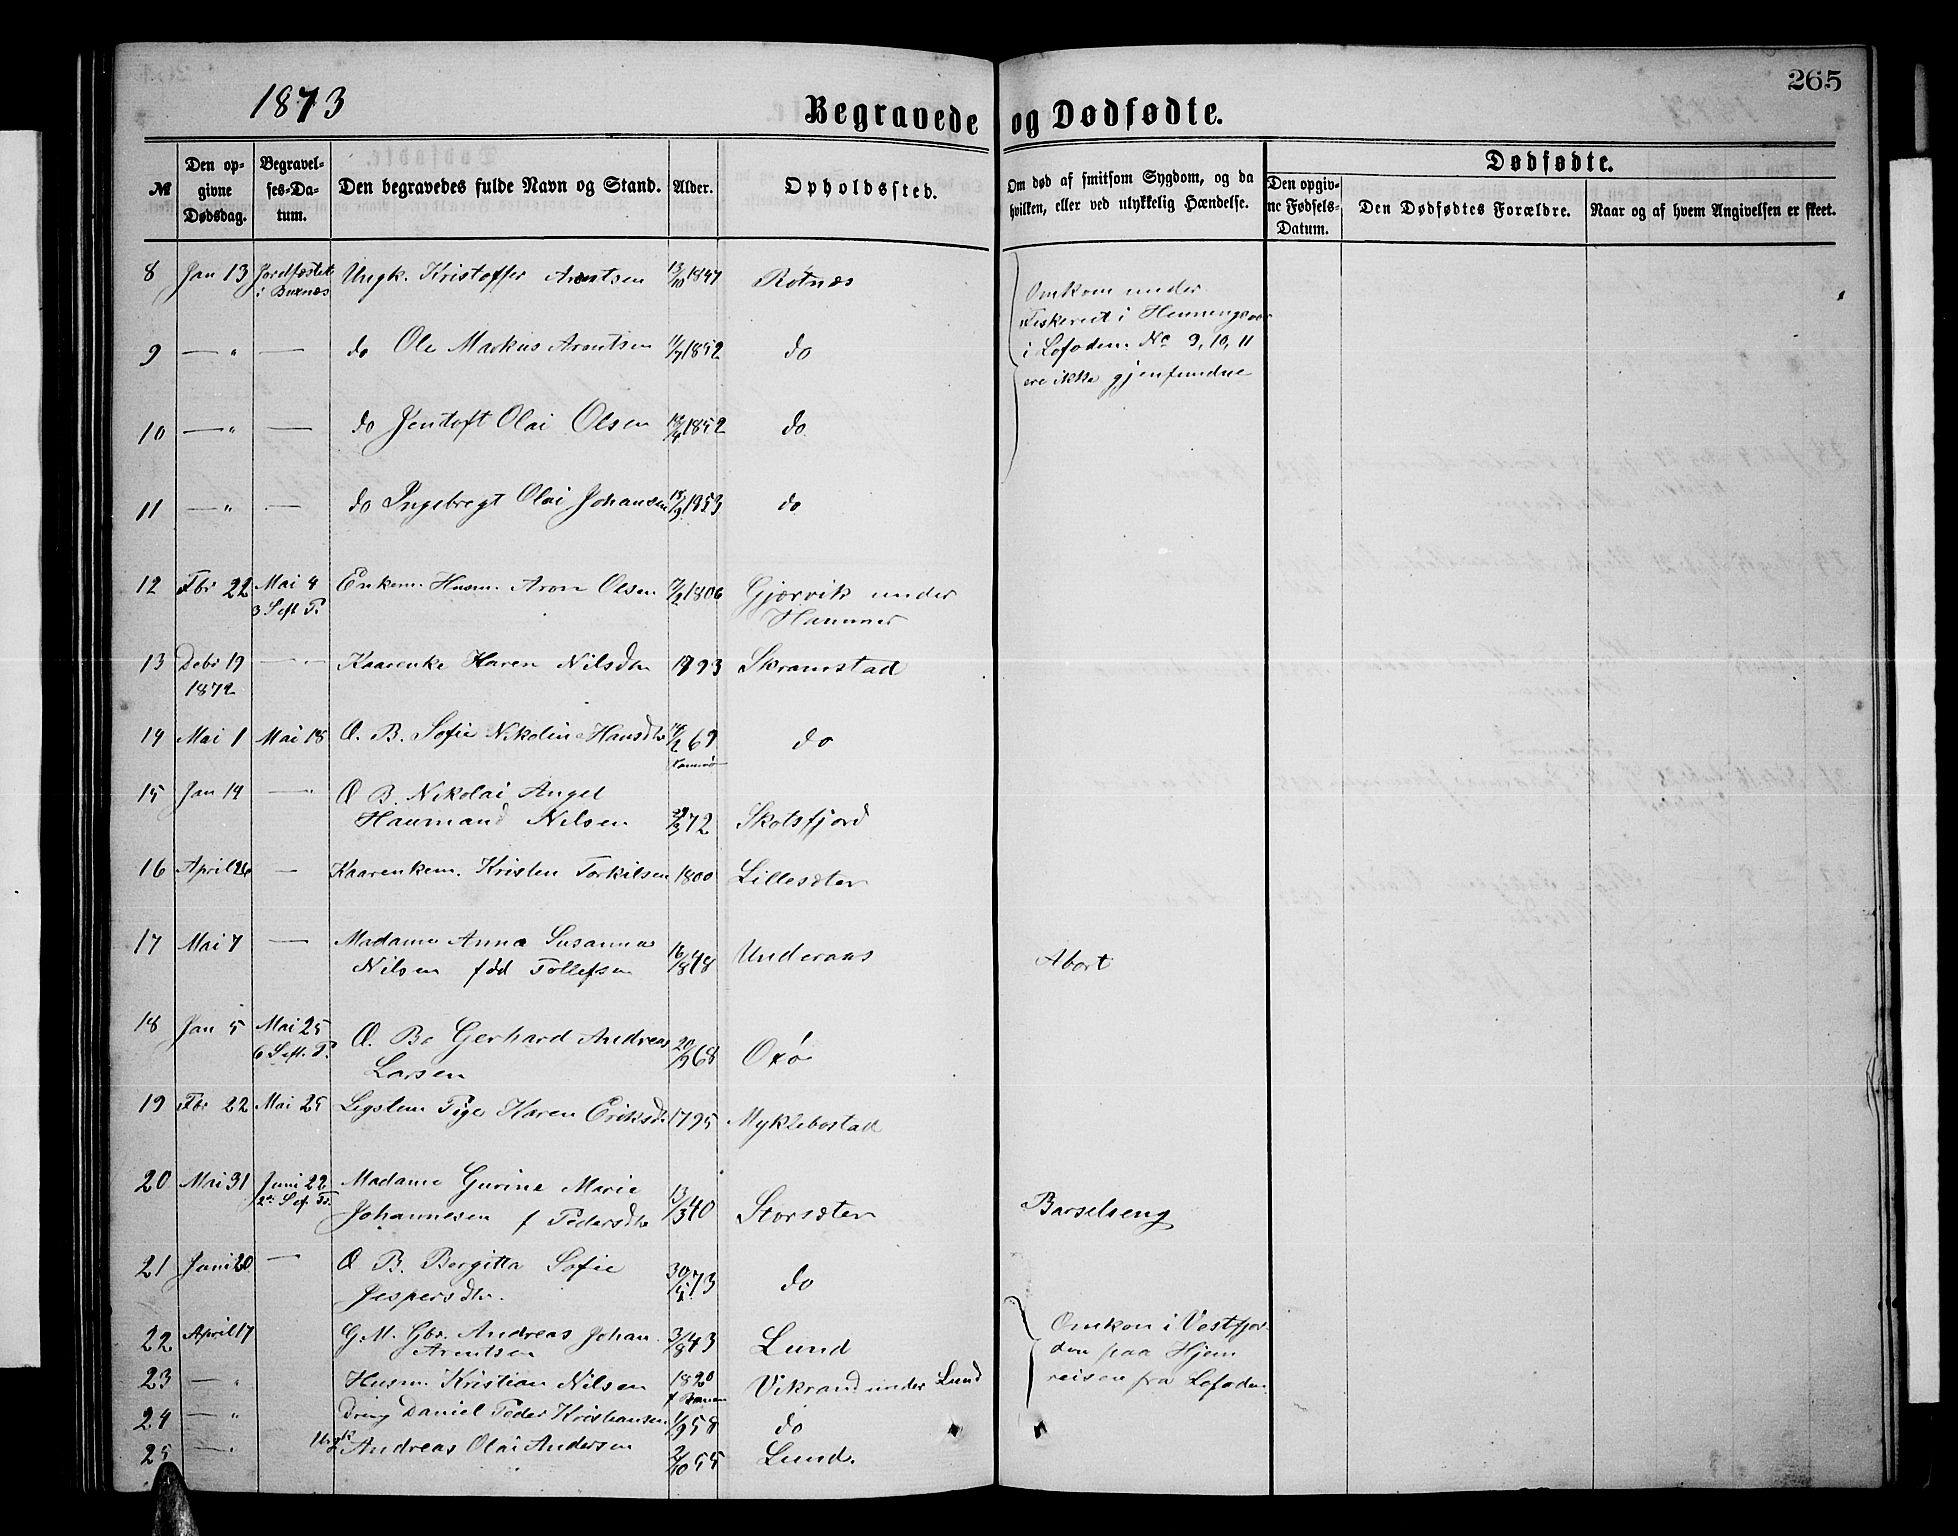 265
1873
Begravede og Dødfødte.
№
Den opgivne Dødsdag.
Begravelses-Datum.
Den begravedes fulde Navn og Stand.
Alder.
Opholdssted.
Om død af smitsom Sygdom, og da hvilken, eller ved ulykkelig Hændelse.
Dødfødte.
Den opgivne Fødsels-Datum.
Den Dødfødtes Forældre.
Naar og af hvem Angivelsen er skeet.
8 Jan 13 Jordfæstet Ungk. Kristoffer Arentsen 13/10 1847 Rotnæs
i Buxnæs
Omkom under
Fiskeriet i Henningsvær
i Lofoden. No 9, 10, 11
ere ikke gjenfundne
9 — " — do Ole Markus Arentsen 1852 do
10 — " — do Jentoft Olai Olsen 1852 do
11 — " — do Ingebregt Olai Johansen 18/9 1853 do
12 Fbr 22 Mai 4 Enkem. Husm. Aron Olsen 1806 Gjærvik under
3 S eft P. Hammer
13 Debr 19 — " Kaarenke Karen Nilsdtr 1793 Skramstad
1872
14 Mai 1 Mai 18 Æ. B. Sofie Nikoline Hansdtr 69 do
Hammerø
15 Jan 14 — " Æ B. Nikolai Angel
Haumand Nilsen 72 Skotsfjord
16 April 26 — Kaarenkem. Kristen Torkilsen 1800 Lillesæter
17 Mai 7 — Madame Anna Susanna
Nilsen fød Tollefsen 16/8 48 Underaas Abort
18 Jan 5 Mai 25 Æ. B. Gerhard Andreas
6 S eft. P. Larsen 20/9 68 Oxø
19 Fbr 22 Mai 25 Legslem Pige Karen Eriksd. 1795 Myklebostad
20 Mai 31 Juni 22 Madame Gurine Marie
2n S ef. Tr. Johannesen f Pedersdtr 13/3 40 Storsæter Barselseng
21 Juni 20 — Æ B. Bergitta Sofie
Jespersdtr. 73 do
22 April 17 G.M. Gbr. Andreas Johan
Arentsen 3/8 43 Lund
Omkom i Vestfjor-
den paa Hjem
reisen fra Lofoden
23 — " Husm Kristian Nilsen 1820 Vikrand under Lund
f Ranen
24 — " Dreng Daniel Peder Kristiansen 1/9 58 do
25 — " Ungk Andreas Olai Andersen 2/10 55 Lund.